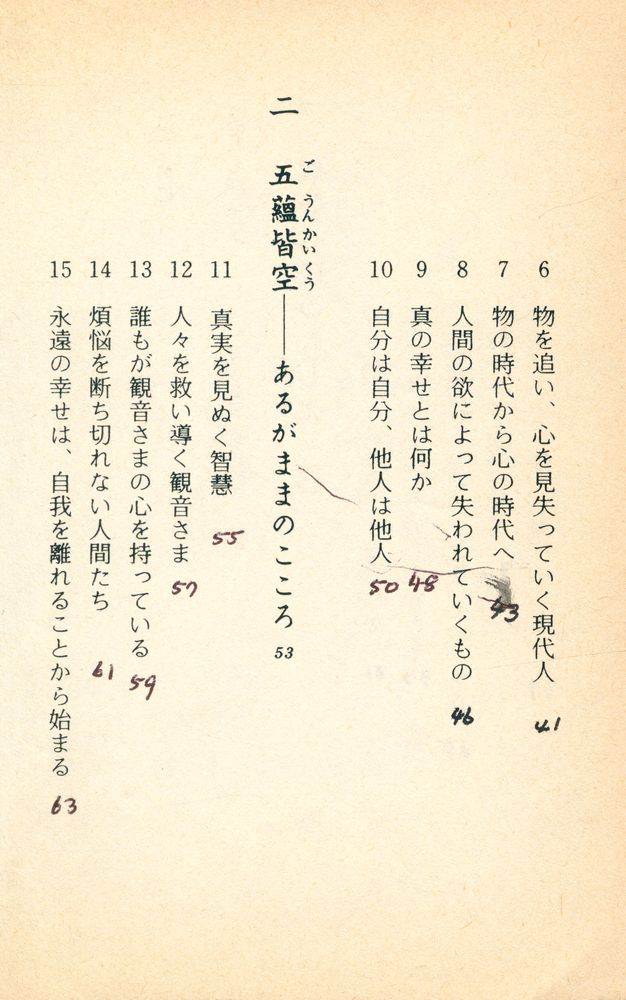 6 物を追い、心を見失っていく現代人 41
7 物の時代から心の時代へ 43
8 人間の欲によって失われていくもの 46
9 真の幸せとは何か 48
10 自分は自分、他人は他人 50
二 五蘊皆空――あるがままのこころ 53
ご うん かい くう
11 真実を見ぬく智慧 55
12 人々を救い導く観音さま 57
13 誰もが観音さまの心を持っている 59
14 煩悩を断ち切れない人間たち 61
15 永遠の幸せは、自我を離れることから始まる 63